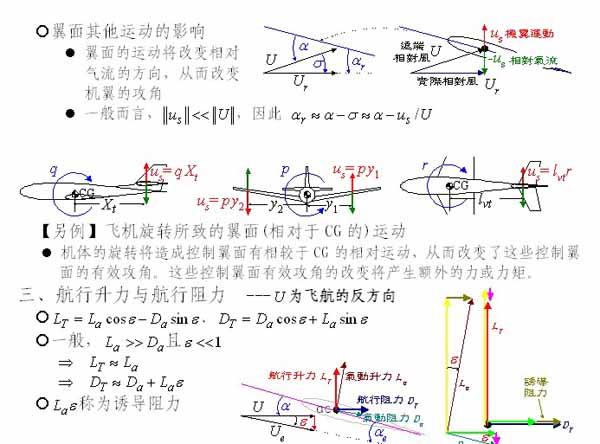 翼面其他运动的影响
翼面的运动将改变相对
气流的方向，从而改变
机翼的攻角
一般而言，||u_s||<<||U||，因此 α_r≈α－σ≈α－u_s/U
U α σ α_r U_r
遠端
相對風 U
實際相對風 U_r
u_s 機翼運動
-u_s 相對氣流
q CG X_t u_s=qX_t
p u_s=py_1
u_s=py_2 y_2 y_1
r CG l_vt u_s=l_vt r
【另例】飞机旋转所致的翼面(相对于CG的)运动
机体的旋转将造成控制翼面有相较于CG的相对运动，从而改变了这些控制翼
面的有效攻角。这些控制翼面有效攻角的改变将产生额外的力或力矩。
三、航行升力与航行阻力 ---U为飞航的反方向
L_T = L_a cosε－D_a sinε，D_T = D_a cosε+L_a sinε
一般，L_a >> D_a 且 ε<<1
⇒ L_T ≈ L_a
⇒ D_T ≈ D_a + L_a ε
L_a ε 称为诱导阻力
航行升力 L_T 氣動升力 L_a
航行阻力 D_T
氣動阻力 D_a
ac
U α ε
U_e α_e
L_T
ε L_a
誘導
阻力
D_T